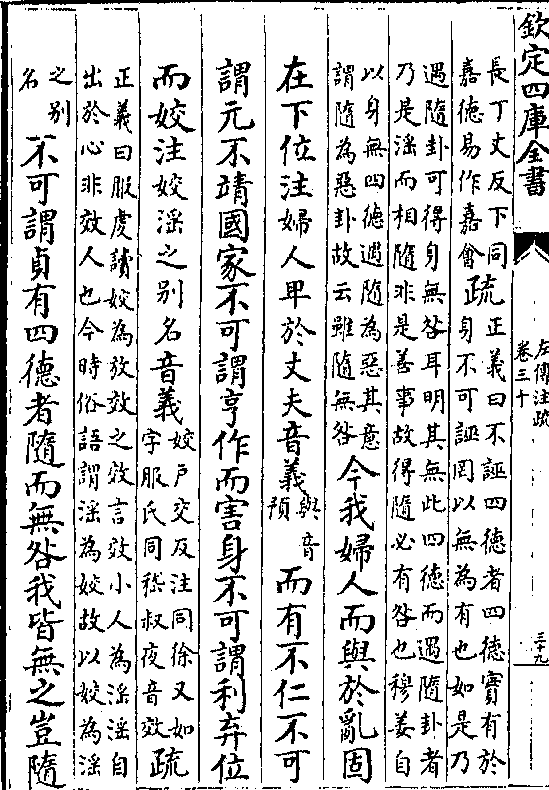 欽定四庫全書
左傳注疏
卷三十
三十九
長丁丈反下同
嘉德易作嘉會
疏
正義曰不誣四德者四德實有於
身不可誣罔以無為有也如是乃
遇隨卦可得身無咎耳明其無此四德而遇隨卦者
乃是淫而相隨非是善事故得隨必有咎也穆姜自
以身無四德遇隨為惡其意
謂隨為惡卦故云雖隨無咎
今我婦人而與於亂固
在下位注婦人卑於丈夫音義
與音
預
而有不仁不可
謂元不靖國家不可謂亨作而害身不可謂利弃位
而姣注姣淫之別名音義
姣戶交反注同徐又如
字服氏同嵇叔夜音效
疏
正義曰服虔讀姣為放效之效言效小人為淫淫自
出於心非效人也今時俗語謂淫為姣故以姣為淫
之別
名
不可謂貞有四德者隨而無咎我皆無之豈隨